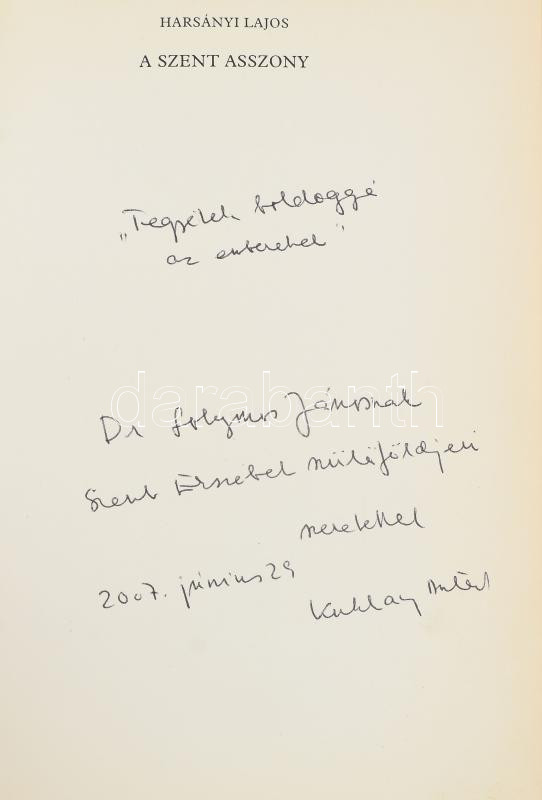 HARSÁNYI LAJOS
A SZENT ASSZONY
„Tegyétek boldoggá
az embereket”
darabanth
Dr Solymos Jánosnak
Szent Erzsébet szülőföldjén
szeretettel
2007. június 29
Kuklay Antal